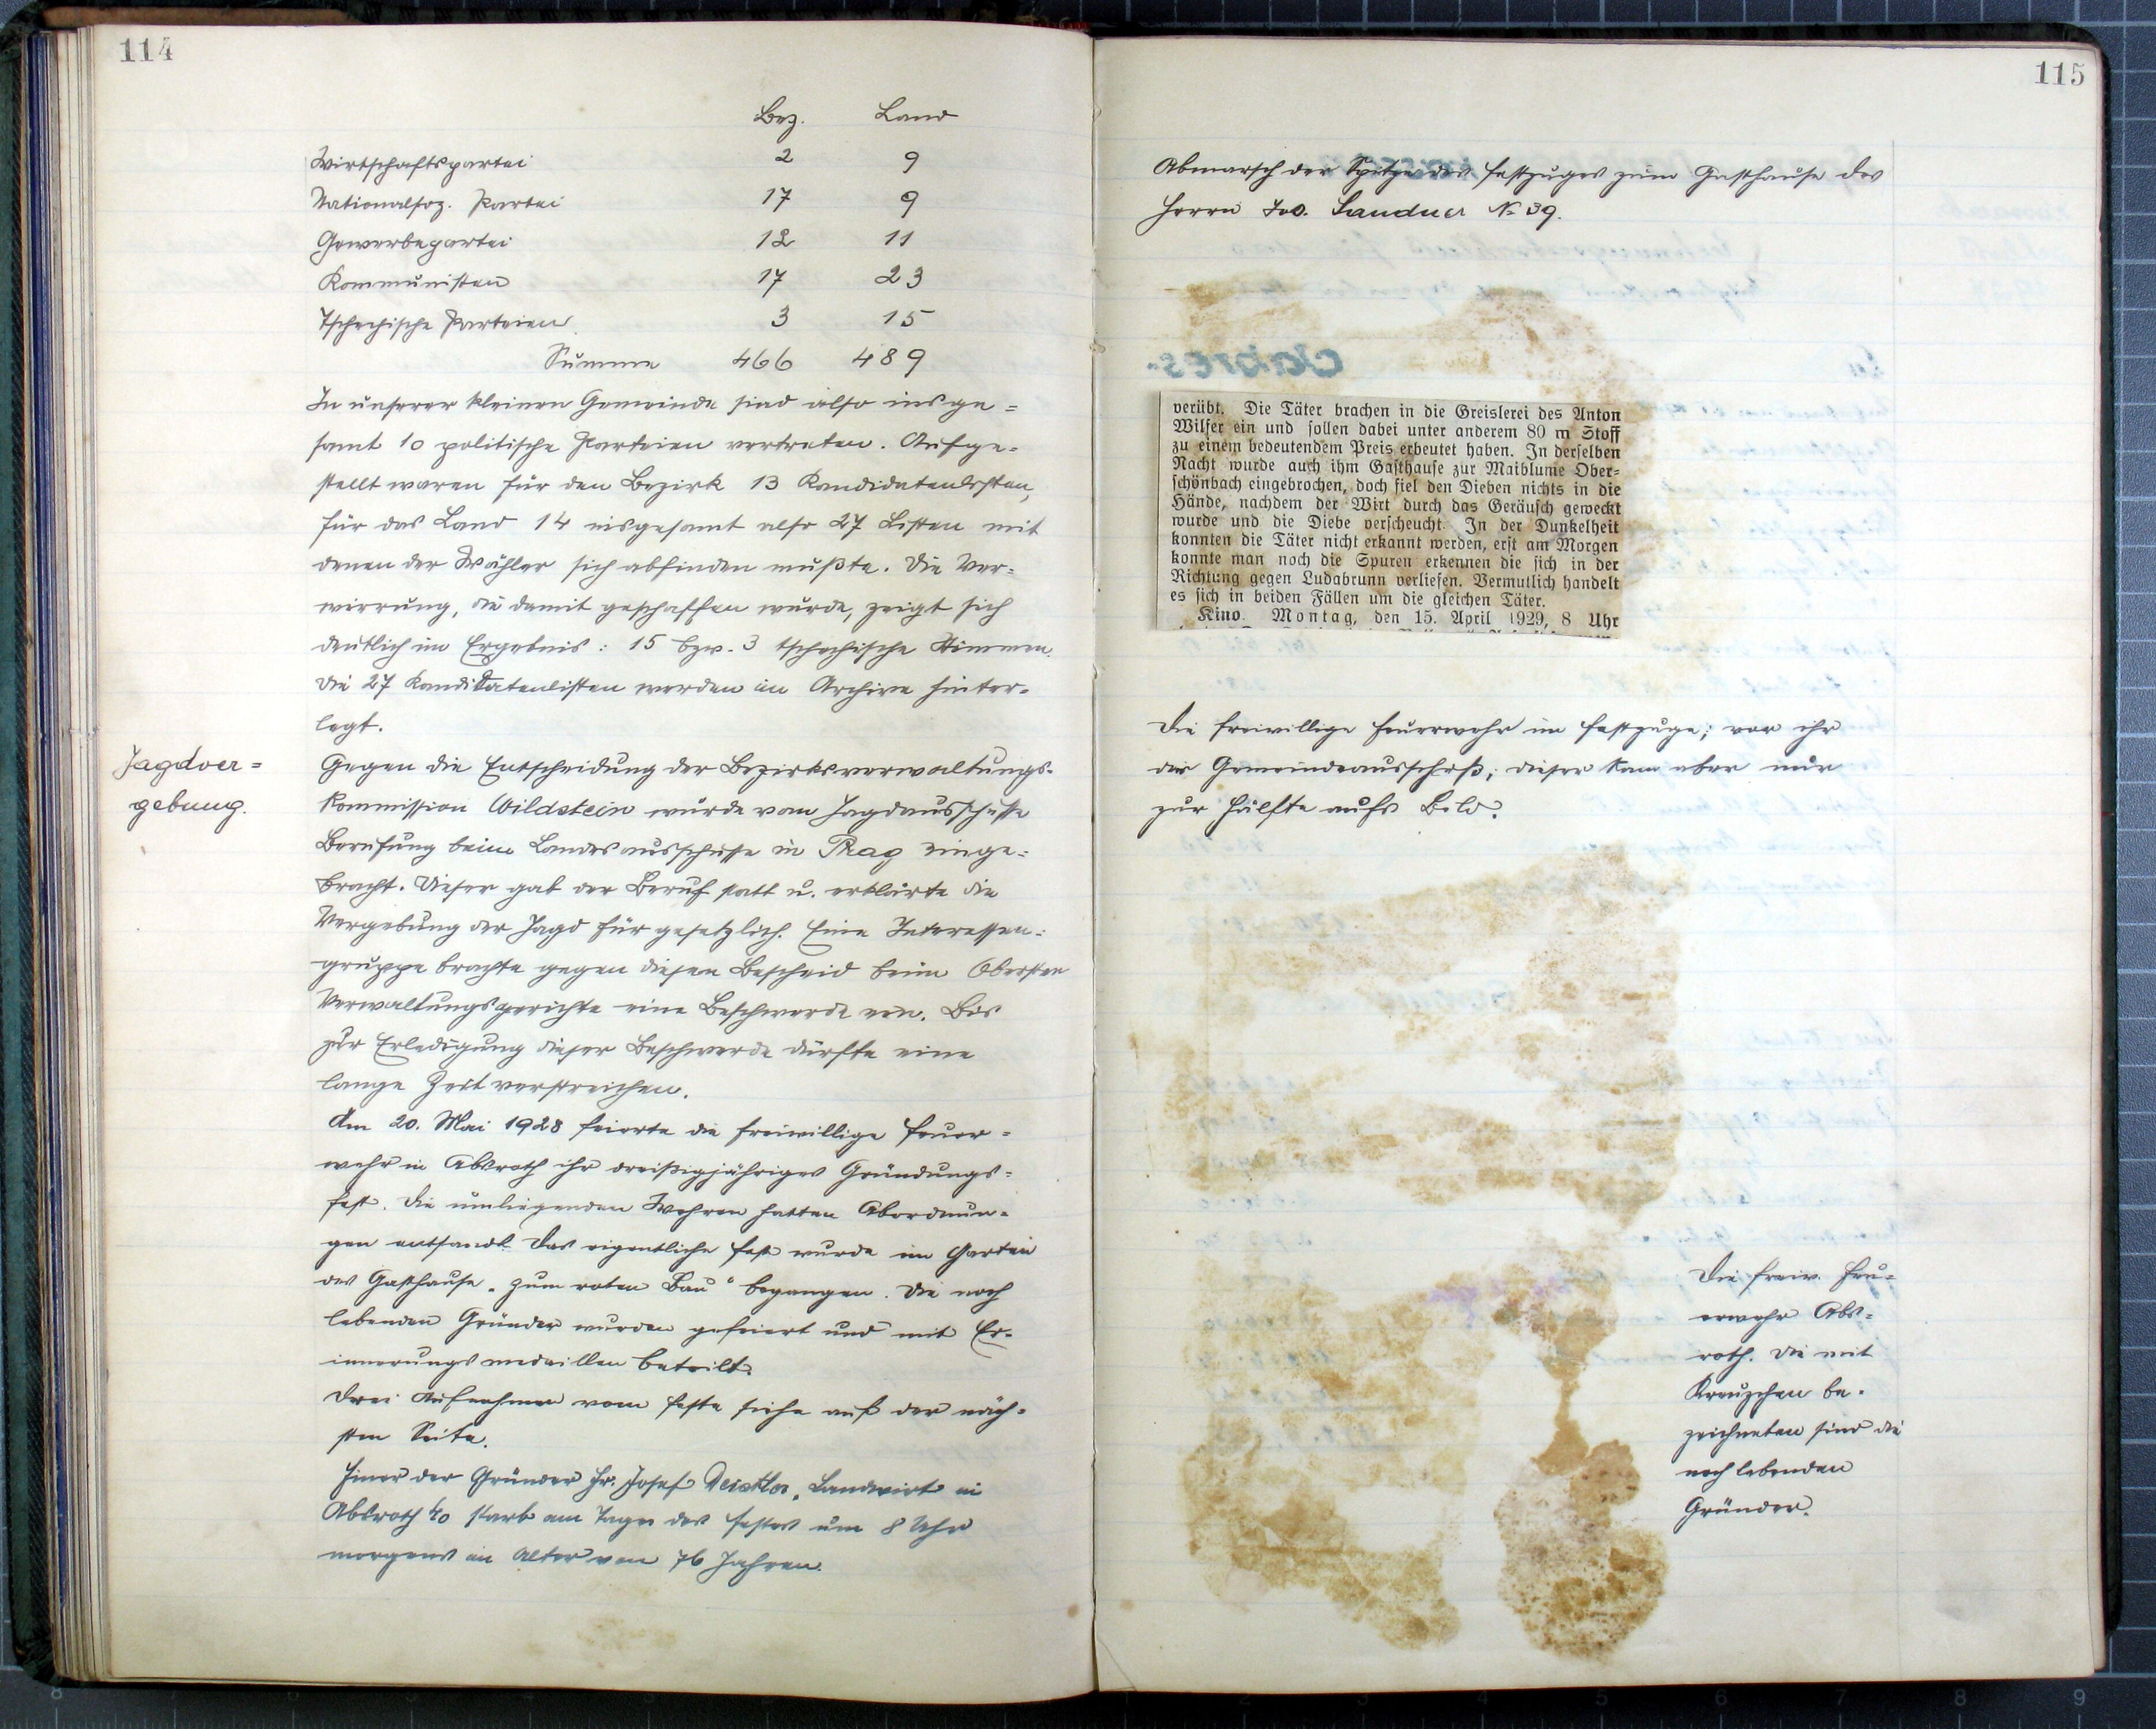 114
Bez. Land
Wirtschaftspartei 2 9
Nationalsoz. Partei 17 9
Gewerbepartei 12 11
Kommunisten 17 23
Tschechische Parteien 3 15
Summe 466 489
In unserer kleinen Gemeinde sind also insge=
samt 10 politische Parteien vertreten. Aufge=
stellt waren für den Bezirk 13 Kandidatenlisten,
für das Land 14 insgesamt also 27 Listen mit
denen der Wähler sich abfinden mußte. Die Ver=
wirrung, die damit geschaffen wurde, zeigt sich
deutlich im Ergebnis: 15 bzw. 3 tschechische Stimmen.
Die 27 Kandidatenlisten werden im Archive hinter=
legt.
Jagdver=
gebung.
Gegen die Entscheidung der Bezirksverwaltungs=
kommission Wildstein wurde vom Jagdausschusse
Berufung beim Landesausschusse in Prag einge=
bracht. Dieser gab der Beruf statt u. erklärte die
Vergebung der Jagd für gesetzlich. Eine Interessen=
gruppe brachte gegen diesen Bescheid beim Obersten
Verwaltungsgerichte eine Beschwerde ein. Bis
zur Erledigung dieser Beschwerde dürfte eine
lange Zeit verstreichen.
Am 20. Mai 1928 feierte die freiwillige Feuer=
wehr in Absroth ihr dreißigjähriges Gründungs=
fest. Die umliegenden Wehren hatten Abordnun=
gen entsandt. Das eigentliche Fest wurde im Garten
des Gasthause „zum roten Bau" begangen. Die noch
lebenden Gründer wurden gefeiert und mit Er=
innerungsmedaillen beteilt.
Drei Aufnahmen vom Feste siehe auf der näch=
sten Seite.
Einer der Gründer Hr. Josef Landwirt in
Absroth 40 starb am Tage des Festes um 8 Uhr
morgens im Alter von 76 Jahren.
115
Abmarsch der Spitze des Festzuges zum Gasthause des
Herrn Jos. Sandner No 39.
verübt. Die Täter brachen in die Greislerei des Anton
Wilfer ein und sollen dabei unter anderem 80 m Stoff
zu einem bedeutendem Preis erbeutet haben. In derselben
Nacht wurde auch ihm Gasthause zur Maiblume Ober=
schönbach eingebrochen, doch fiel den Dieben nichts in die
Hände, nachdem der Wirt durch das Geräusch geweckt
wurde und die Diebe verscheucht. In der Dunkelheit
konnten die Täter nicht erkannt werden, erst am Morgen
konnte man noch die Spuren erkennen die sich in der
Richtung gegen Ludabrunn verliefen. Vermutlich handelt
es sich in beiden Fällen um die gleichen Täter.
Kino. Montag, den 15. April 1929, 8 Uhr
Die freiwillige Feuerwehr im Festzuge; vor ihr
der Gemeindeausschuß; dieser kam aber nur
zur Hälfte aufs Bild.
Die freiw. Feu=
erwehr Abs=
roth. Die mit
Kreuzchen be=
zeichneten sind die
noch lebenden
Gründer.